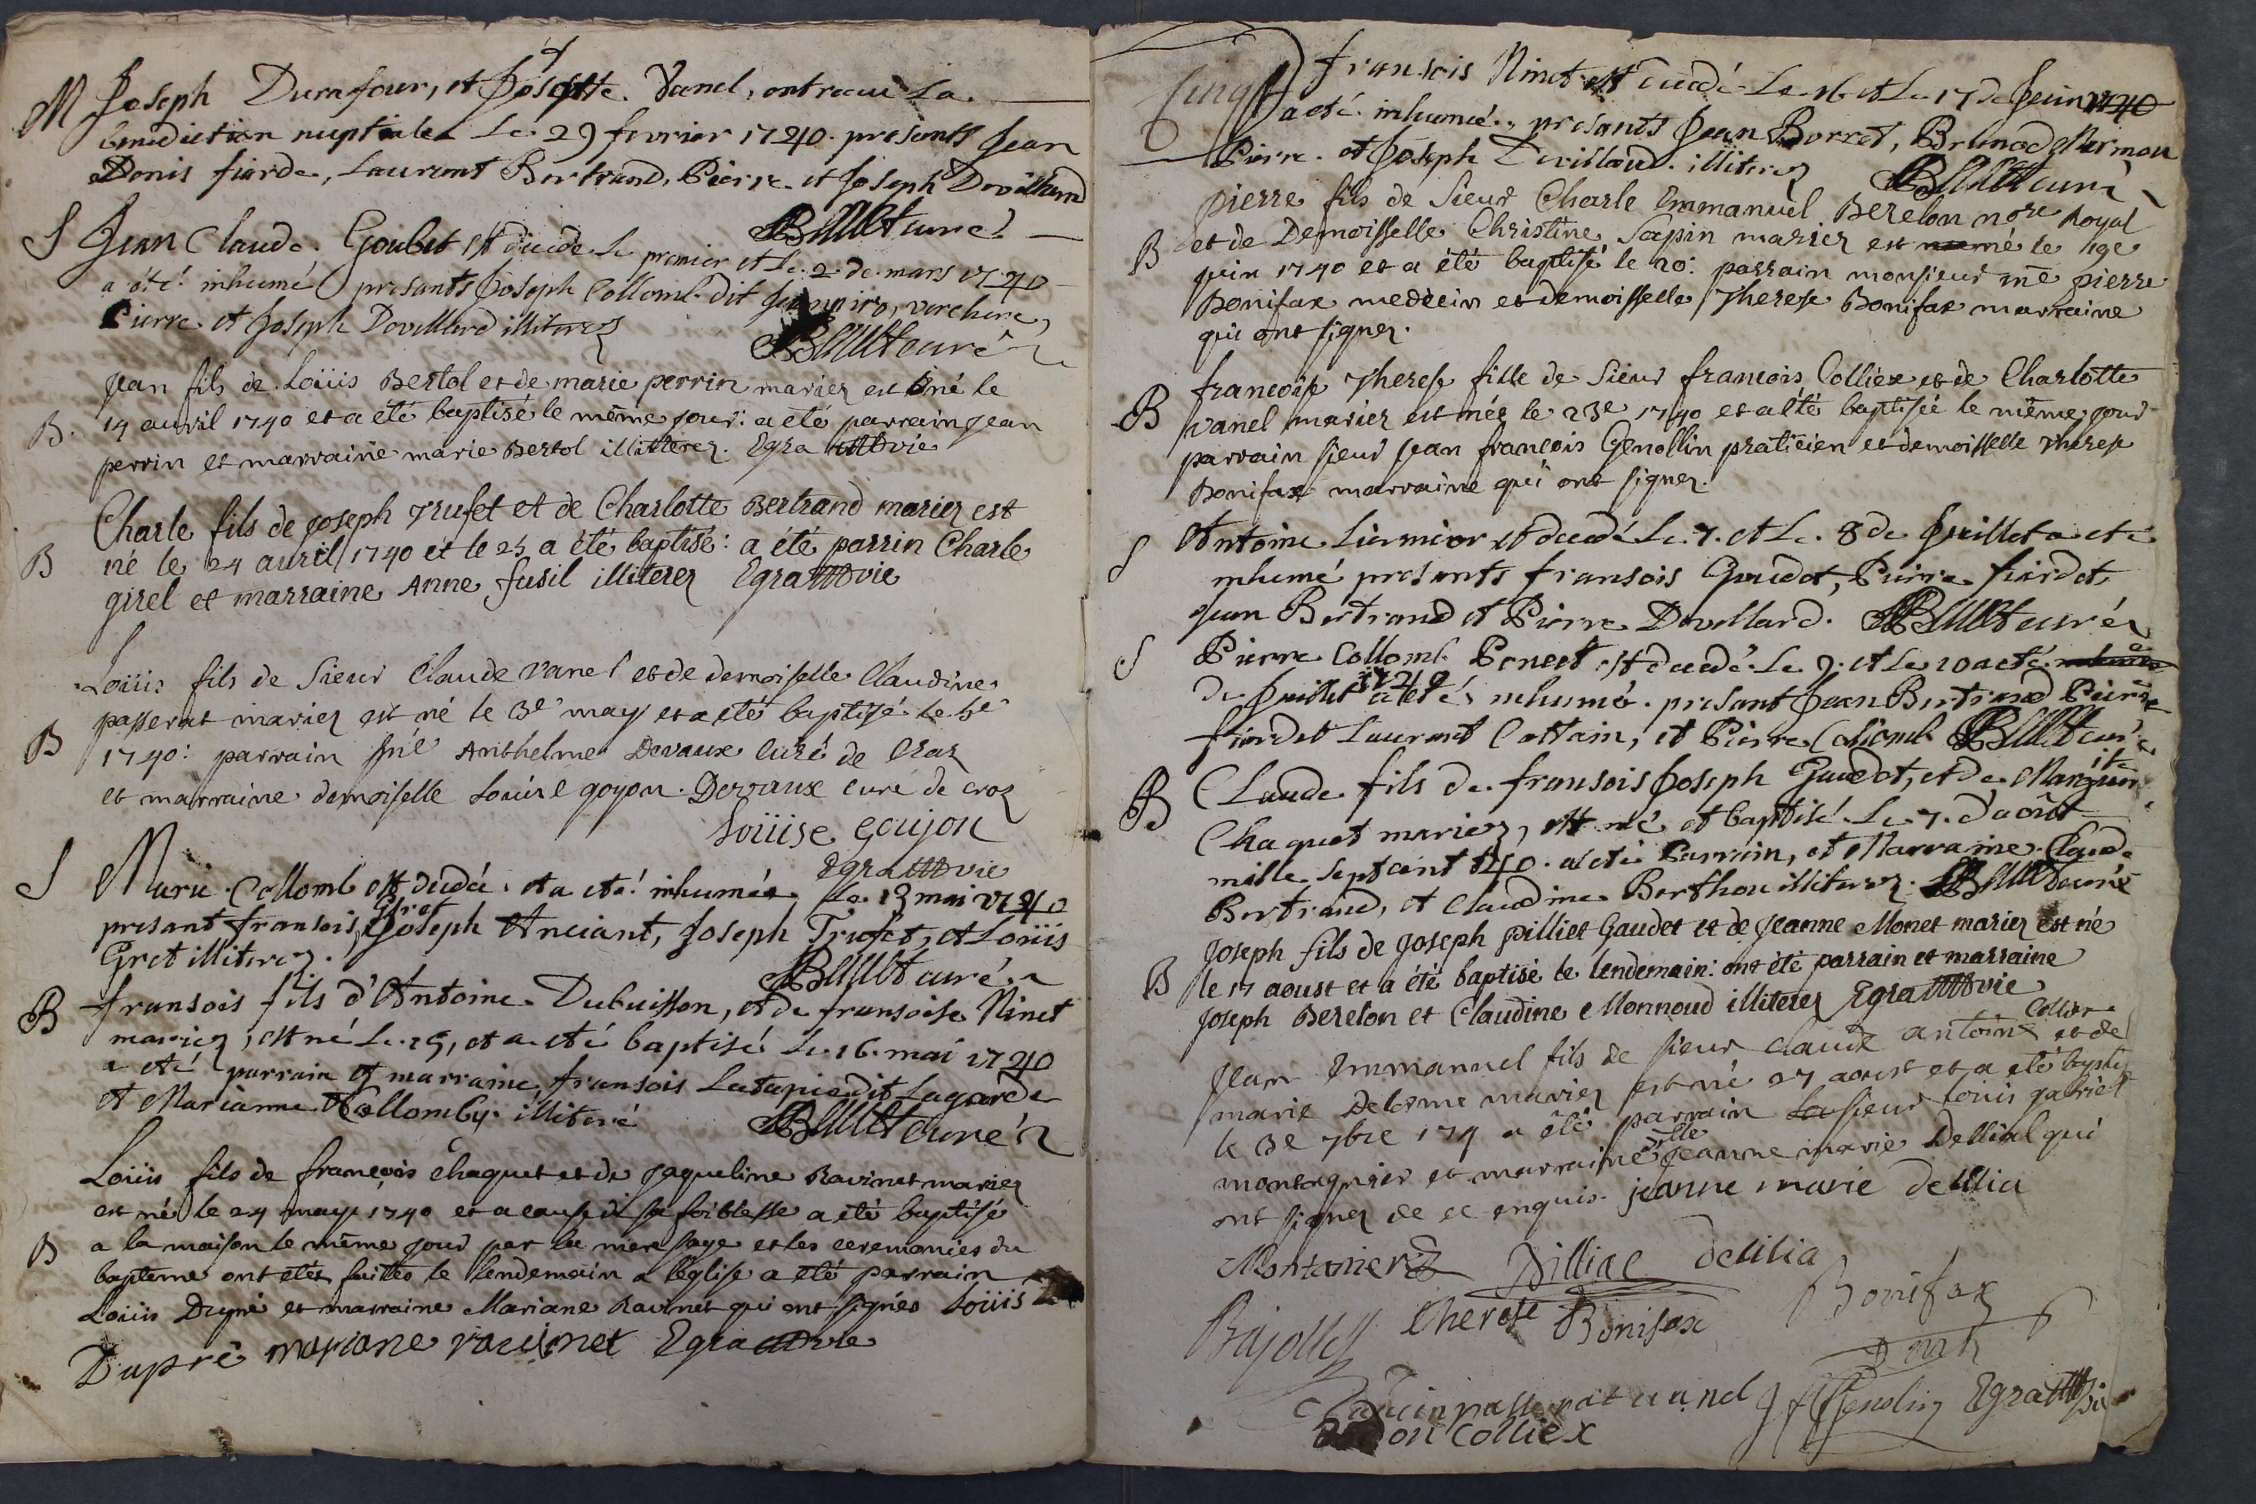 M Joseph Dumfour, et Josephtte Vanel, ont recu La
benediction nuptiale Le 29 fevrier 1740. presents Jean
Denis fiarde, Laurent Bertrand, Pierre et Joseph Devillard
Ballet curé
S Jean Claude Goubet est décédé Le premier et Le 2 de mars 1740
a été inhumé presants Joseph Collomb dit verchere,
Pierre et Joseph Devillard illiterez
Ballet curé
Jean fils de Loüis Bertol et de marie perrin mariez est né le
B. 14 avril 1740 et a été baptisé le même jour: a été parrain jean
perrin et marraine marie Bertol illitterez. Egra vie
Charle fils de joseph Trufet et de Charlotte Bertrand mariez est
B né le 24 avril 1740 et le 25 a été baptisé: a été parrin Charle
girel et marraine Anne fusil illiterez Egra vie
Loüis fils de Sieur Claude vanel et de demoiselle Claudine
passerat mariez est né le 3e may et a été baptisé le 5e
B 1740: parrain Anthelme Devaux curé de Craz
et marraine demoiselle Loüise goyon. Dervaux curé de croz
Loüise goujon
Egra vie
S Marie Collomb est dcédée et a été inhumée Le 13 mai 1740
presant fransois, Joseph Anciant, Joseph Trufet, et Loüis
Gret illiterez.
Ballet curé
B fransois fils d'Antoine Dubuisson, et de fransoise Ninet
mariez, est né Le 15, et a été baptisé Le 16 mai 1740
a été parrain et marraine fransois Latapie dit Lagarde
et Marianne Collomby illiteré
Ballet curé
Loüis fils de francois chaquet et de jaqueline Ravinet mariez
est né le 24 may 1740 et a cause de sa foiblesse a été baptisé
B a la maison le même jour par la mere sage et les ceremonies du
bapteme ont etés faittes le lendemain a l'église a été parrain
Loüis Dupré et marraine Mariane Ravinet qui ont signés Loüis
Dupré mariane ravinet Egra vie
fransois Ninet est décédé Le 16 et Le 17 de Juin 1740
a été inhumé, presants Jean Borret, Brunod Mermon
Pierre et Joseph Devillard illiterez
Ballet curé
pierre fils de Sieur Charle Emmanuel Berelon nore Royal
B et de Demoisselle Christine Sapin mariez est né le 19e
juin 1740 et a été baptisé le 20: parrain monsieur me pierre
Bonifax medecin et demoisselle Therese Bonifax marraine
qui ont signez.
francoise Therese fille de Sieur francois Colliex et de Charlotte
B vanel mariez est née le 23e 1740 et a été baptisée le même jour
parrain sieur jean francois Genollin praticien et demoisselle Therese
Bonifax marraine qui ont signez.
S Antoine Liermier est décédé Le 7. et Le 8 de Juillet a été
inhumé presants fransois Gaudet, Pierre fiardet
jean Bertrand et Pierre Devillard. Ballet curé
S Pierre Collomb Ponect est décédé Le 9. et Le 10 a été
de Juillet 1740 a été inhumé. presant Jean Bertrand Pierre
fiardet Laurent Cottain, et Pierre Collomb Ballet curé
B Claude fils de fransois Joseph Gaudet, et de Marguerite
Chaquet mariez, est né et baptisé Le 7. d'août
mille sept cent 40. a été Parrain, et Marraine Claude
Bertrand, et Claudine Berthou illiterez. Ballet curé
Joseph fils de joseph pilliet Gaudet et de jeanne Monet mariez est né
B le 17 aoust et a été baptisé le lendemain: ont été parrain et marraine
joseph Berelon et Claudine Monnoud illiterez Egra vie
jean Emmanuel fils de sieur claude antoine Collier et de
marie Delorme mariez est né 27 aoust et a été baptisé
le 3e 7bre 174 a été parrain sieur louis gabriel
montagnier et marraine dlle jeanne marie Dellial qui
ont signez de ce enquis. jeanne marie delilia
Montanier Dilliae delilia
Bajolley Therese Bonifax Bonifax
passerat vanel Egra vie
colliex